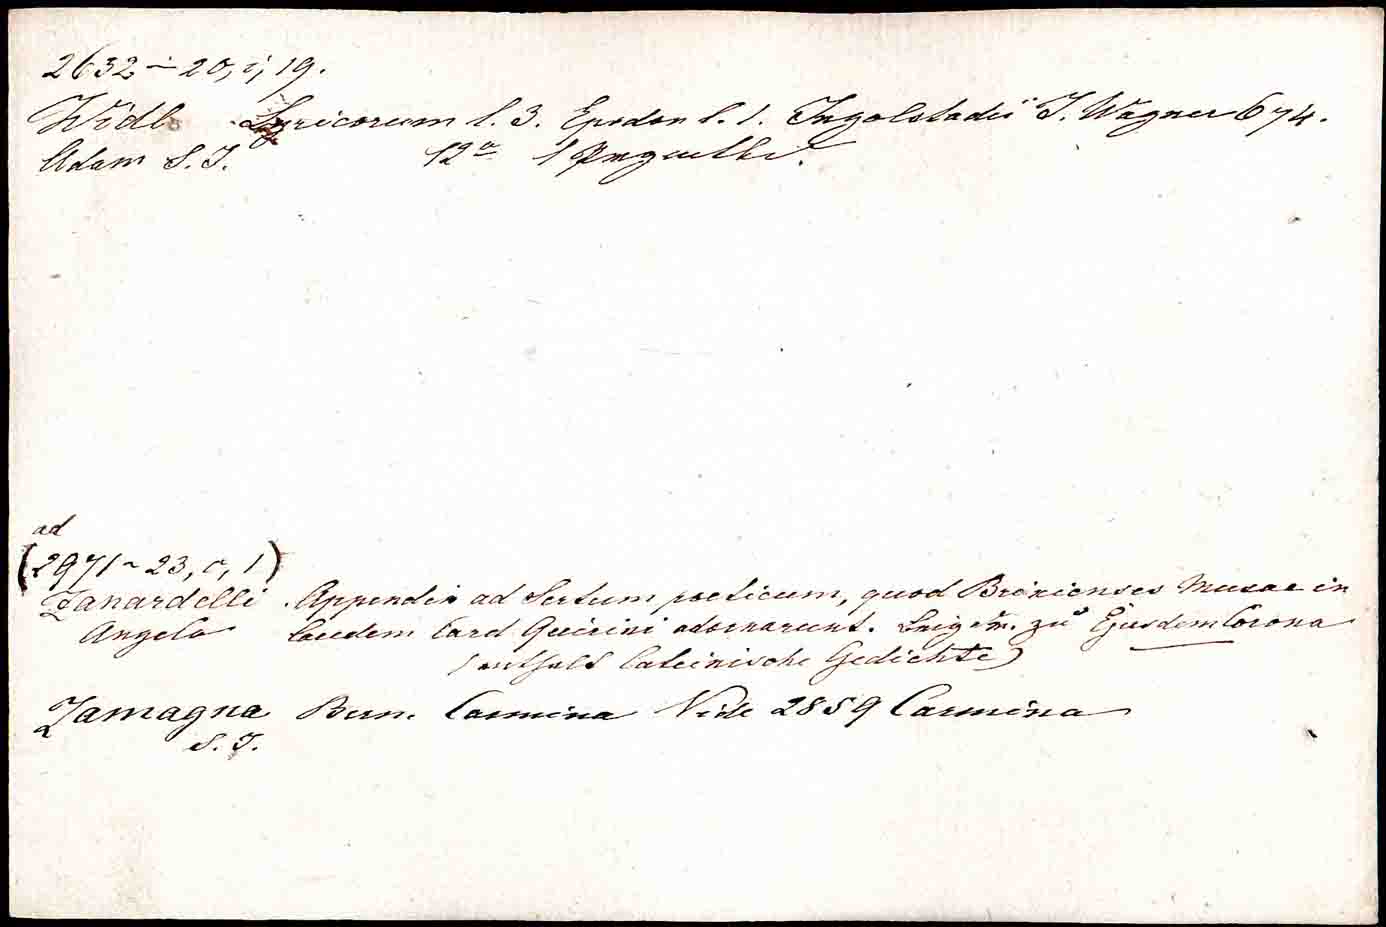 2632 – 20, i, 19.
Widl Lyricorum l. 3. Epodon l. 1. Ingolstadii J. Wagner 674.
Adam S. J. 12°
ad
(2971 ~ 23, c, 1)
Zanardelli Appendix ad Sertum poeticum, quod Brixienses Musae in
Angelo laudem Card Quirini adornarunt. zu Ejusdem Corona
(enthält lateinische Gedichte)
Zamagna Bern. Carmina Vide 2859 Carmina
S. J.